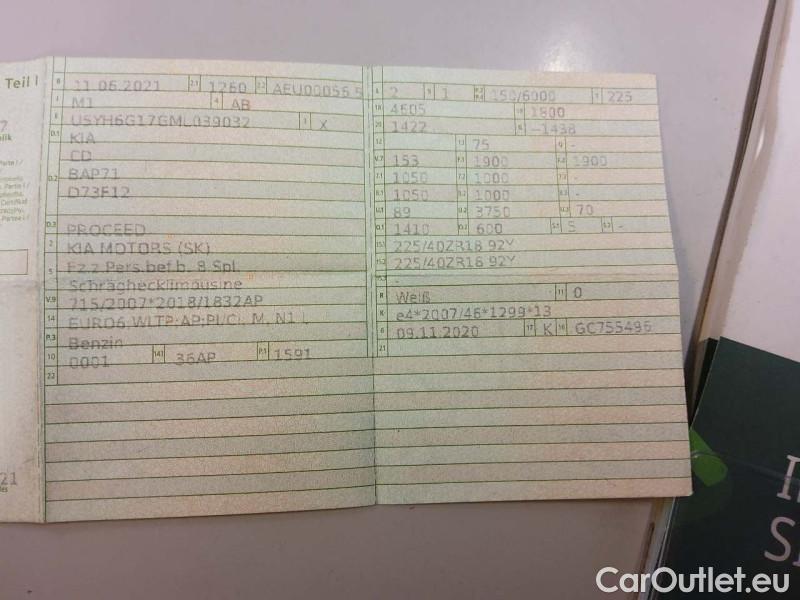 Teil I
B 11.06.2021 2.1 1260 2.2 AEU00056 5
J M1 4 AB
E U5YH6G17GML039032 3 X
D.1 KIA
CD
D.2 BAP71
D73F12
D.3 PROCEED
2 KIA MOTORS (SK)
5 Fz.z.Pers.bef.b. 8 Spl.
Schräghecklimousine
V.9 715/2007*2018/1832AP
14 EURO6 WLTP;AP;PI/CI; M, N1 I
P.3 Benzin
10 0001 14.1 36AP P.1 1591
22
L 2 9 1 P.2 P.4 150/6000 T 225
18 4605 19 1800
20 1422 G -1438
12 - 13 75 Q -
V.7 153 F.1 1900 F.2 1900
7.1 1050 7.2 1000 7.3 -
8.1 1050 8.2 1000 8.3 -
U.1 89 U.2 3750 U.3 70
O.1 1410 O.2 600 S.1 5 S.2 -
15.1 225/40ZR18 92Y
15.2 225/40ZR18 92Y
15.3 -
R Weiß 11 0
K e4*2007/46*1299*13
6 09.11.2020 17 K 16 GC755496
21
21
CarOutlet.eu